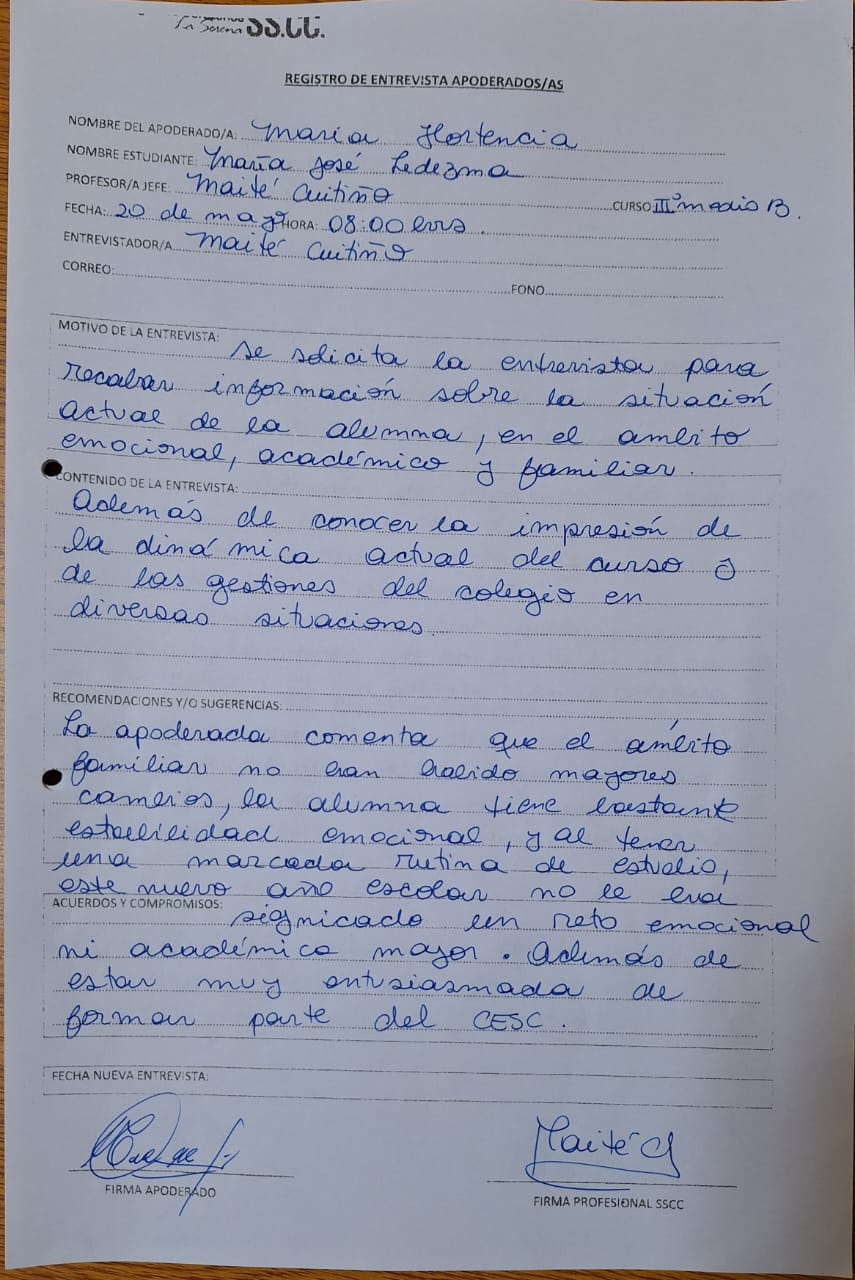 La Serena SS.CC.
REGISTRO DE ENTREVISTA APODERADOS/AS
NOMBRE DEL APODERADO/A: Maria Hortencia
NOMBRE ESTUDIANTE: María José Ledezma
PROFESOR/A JEFE: Maité Cuitiño CURSO IIIº medio B.
FECHA: 20 de mayo HORA: 08:00 hrs.
ENTREVISTADOR/A Maité Cuitiño
CORREO: FONO
MOTIVO DE LA ENTREVISTA: Se solicita la entrevista para
recabar información sobre la situación
actual de la alumna, en el ambito
emocional, académico y familiar.
CONTENIDO DE LA ENTREVISTA:
Además de conocer la impresión de
la dinámica actual del curso y
de las gestiones del colegio en
diversas situaciones.
RECOMENDACIONES Y/O SUGERENCIAS:
La apoderada comenta que el ámbito
familiar no han habido mayores
cambios, la alumna tiene bastante
estabilidad emocional, y al tener
una marcada rutina de estudio,
este nuevo año escolar no le ha
ACUERDOS Y COMPROMISOS: signicado un reto emocional
ni académico mayor. Además de
estar muy entusiasmada de
formar parte del CESC.
FECHA NUEVA ENTREVISTA:
Maité C
FIRMA APODERADO
FIRMA PROFESIONAL SSCC